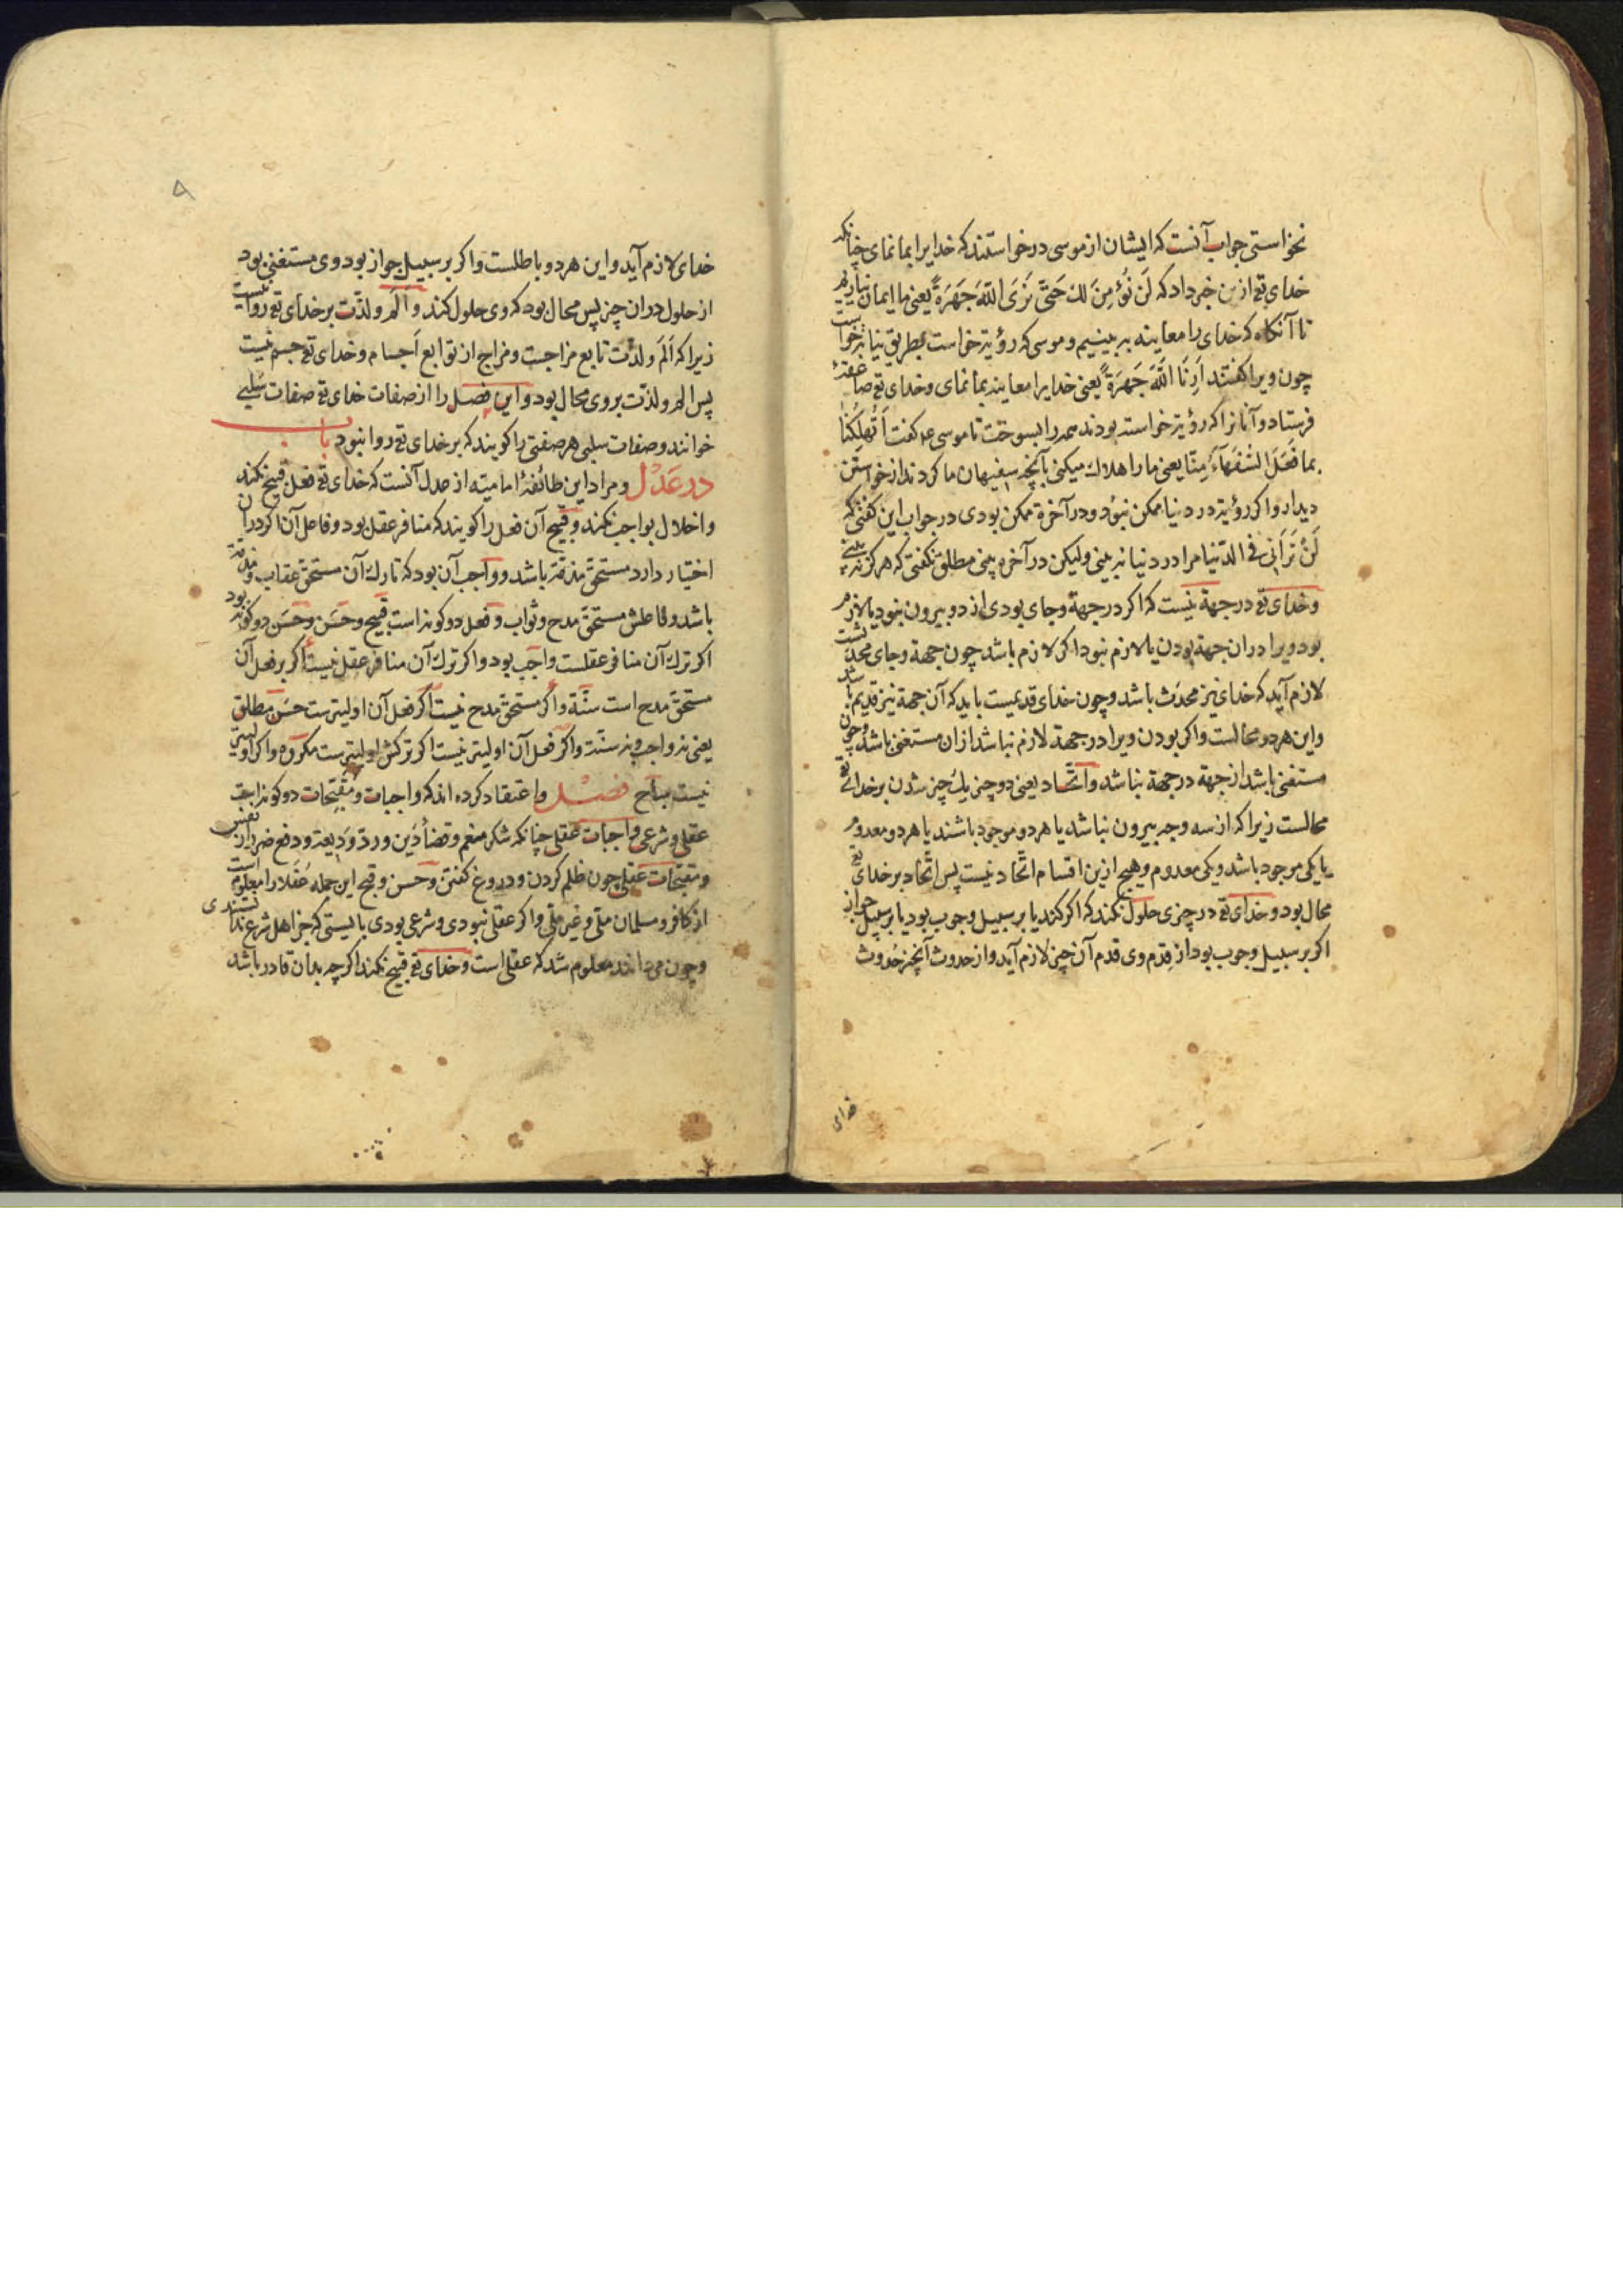 نخواستی جواب آنست که ایشان از موسی درخواستند که خدایرا بما نمای چنانکه
خدای تع ازین خبر داد که لَن نُؤمِنَ لك حَتّی نَرَی اللّهَ جَهرَةً یعنی ما ایمان نیاریم
تا آنکاه که خدای را معاینه به بینیم و موسی که رؤیة خواست بطریق نیابة خواست
چون ویرا کفتند اَرِنَا اللّهَ جَهرَةً یعنی خدایرا معاینه بما نمای و خدای تع صاعقهٔ
فرستاد و آنانرا که رؤیة خواسته بودند همه را بسوخت تا موسی ع کفت اَتُهلِکُنا
بما فَعَلَ السُّفَهآءُ مِنّا یعنی ما را هلاك میکنی بآنچه سفیهان ما کردند از خواستن
دیدار و اکر رؤیة در دنیا ممکن نبودی و در آخرة ممکن بودی در جواب این کفتی که
لَنْ تَرَانی فی الدّنیا مرا در دنیا نه بینی ولیکن در آخره بینی مطلق نکفتی که هرکز نه بینی
و خدای تع در جهة نیست که اکر در جهة و جای بودی از دو بیرون نبود یا لازم
بود ویرا در ان جهة بودن یا لازم نبود اکر لازم باشد چون جهة و جای محدثست
لازم آید که خدای نیز محدَث باشد و چون خدای قدیمست باید که آن جهة نیز قدیم باشد
و این هردو محالست و اکر بودن ویرا در جهة لازم نباشد ازان مستغنی باشد و چون
مستغنی باشد از جهة در جهة نباشد و اتّحاد یعنی دو چیز یك چیز شدن بر خدای تع
محالست زیرا که از سه وجه بیرون نباشد یا هردو موجود باشند یا هردو معدوم
یا یکی موجود باشد و یکی معدوم و هیچ ازین اقسام اتّحاد نیست پس اتّحاد بر خدای تع
محال بود و خدای تع در چیزی حلول نکند که اکر کند یا بر سبیل وجوب بود یا بر سبیل جواز
اکر بر سبیل وجوب بود از قِدم وی قدم آن چیز لازم آید و از حدوث آنچیز حُدوث
خدای
۵
خدای لازم آید و این هردو باطلست و اکر بر سبیل جواز بود وی مستغنی بود
از حلول در ان چیز پس محال بود که وی حلول کند و اَلَم و لذّت بر خدای تع روا نیست
زیرا که اَلَم و لذّت تابع مزاجست و مزاج از توابع اَجسام و خدای تع جسم نیست
پس الم و لذّت بر وی محال بود و این فصل را از صفات خدای تع صفات سَلبی
خوانند و صفات سلبی هر صفتی را کویند که بر خدای تع روا نبود باب
در عَدْل و مراد این طائفهٔ امامیّه از عدل آنست که خدای تع فعل قبیح نکند
و اخلال بواجب نکند و قبیح آن فعل را کویند که منافر عقل بود و فاعل آن اکر در ان
اختیار دارد مستحقّ مذمّة باشد و واجب آن بود که تارك آن مستحقّ عقاب و مذمّة
باشد و فاعلش مستحقّ مدح و ثواب و فعل دو کونه است قبیح و حَسَن و حَسَن دو کونه بود
اکر ترك آن منافر عقلست واجب بود و اکر ترك آن منافر عقل نیست اکر بر فعل آن
مستحقّ مدح است سنّة و اکر مستحقّ مدح نیست اکر فعل آن اولیترست حسَن مطلق
یعنی نه واجب و نه سنّة و اکر فعل آن اولیتر نیست اکر ترکش اولیترست مکروه و اکر اولیتر
نیست مباح فصل و اعتقاد کرده اند که واجبات و مقبّحات دو کونه است
عقلی و شرعی واجبات عقلی چنانکه شکر منعم و قضأ دَین و ردّ وَدِیعة و دفع ضرر از نفس
و مقبّحات عقلی چون ظلم کردن و دروغ کفتن و حسن و قبح این جمله عُقَلا را معلوم است
از کافر و مسلمان ملّی و غیر ملّی و اکر عقلی نبودی و شرعی بودی بایستی که جز اهل شرع ندانستندی
و چون می دانند معلوم شد که عقلی است و خدای تع قبیح نکند اکر چه بدان قادر باشد